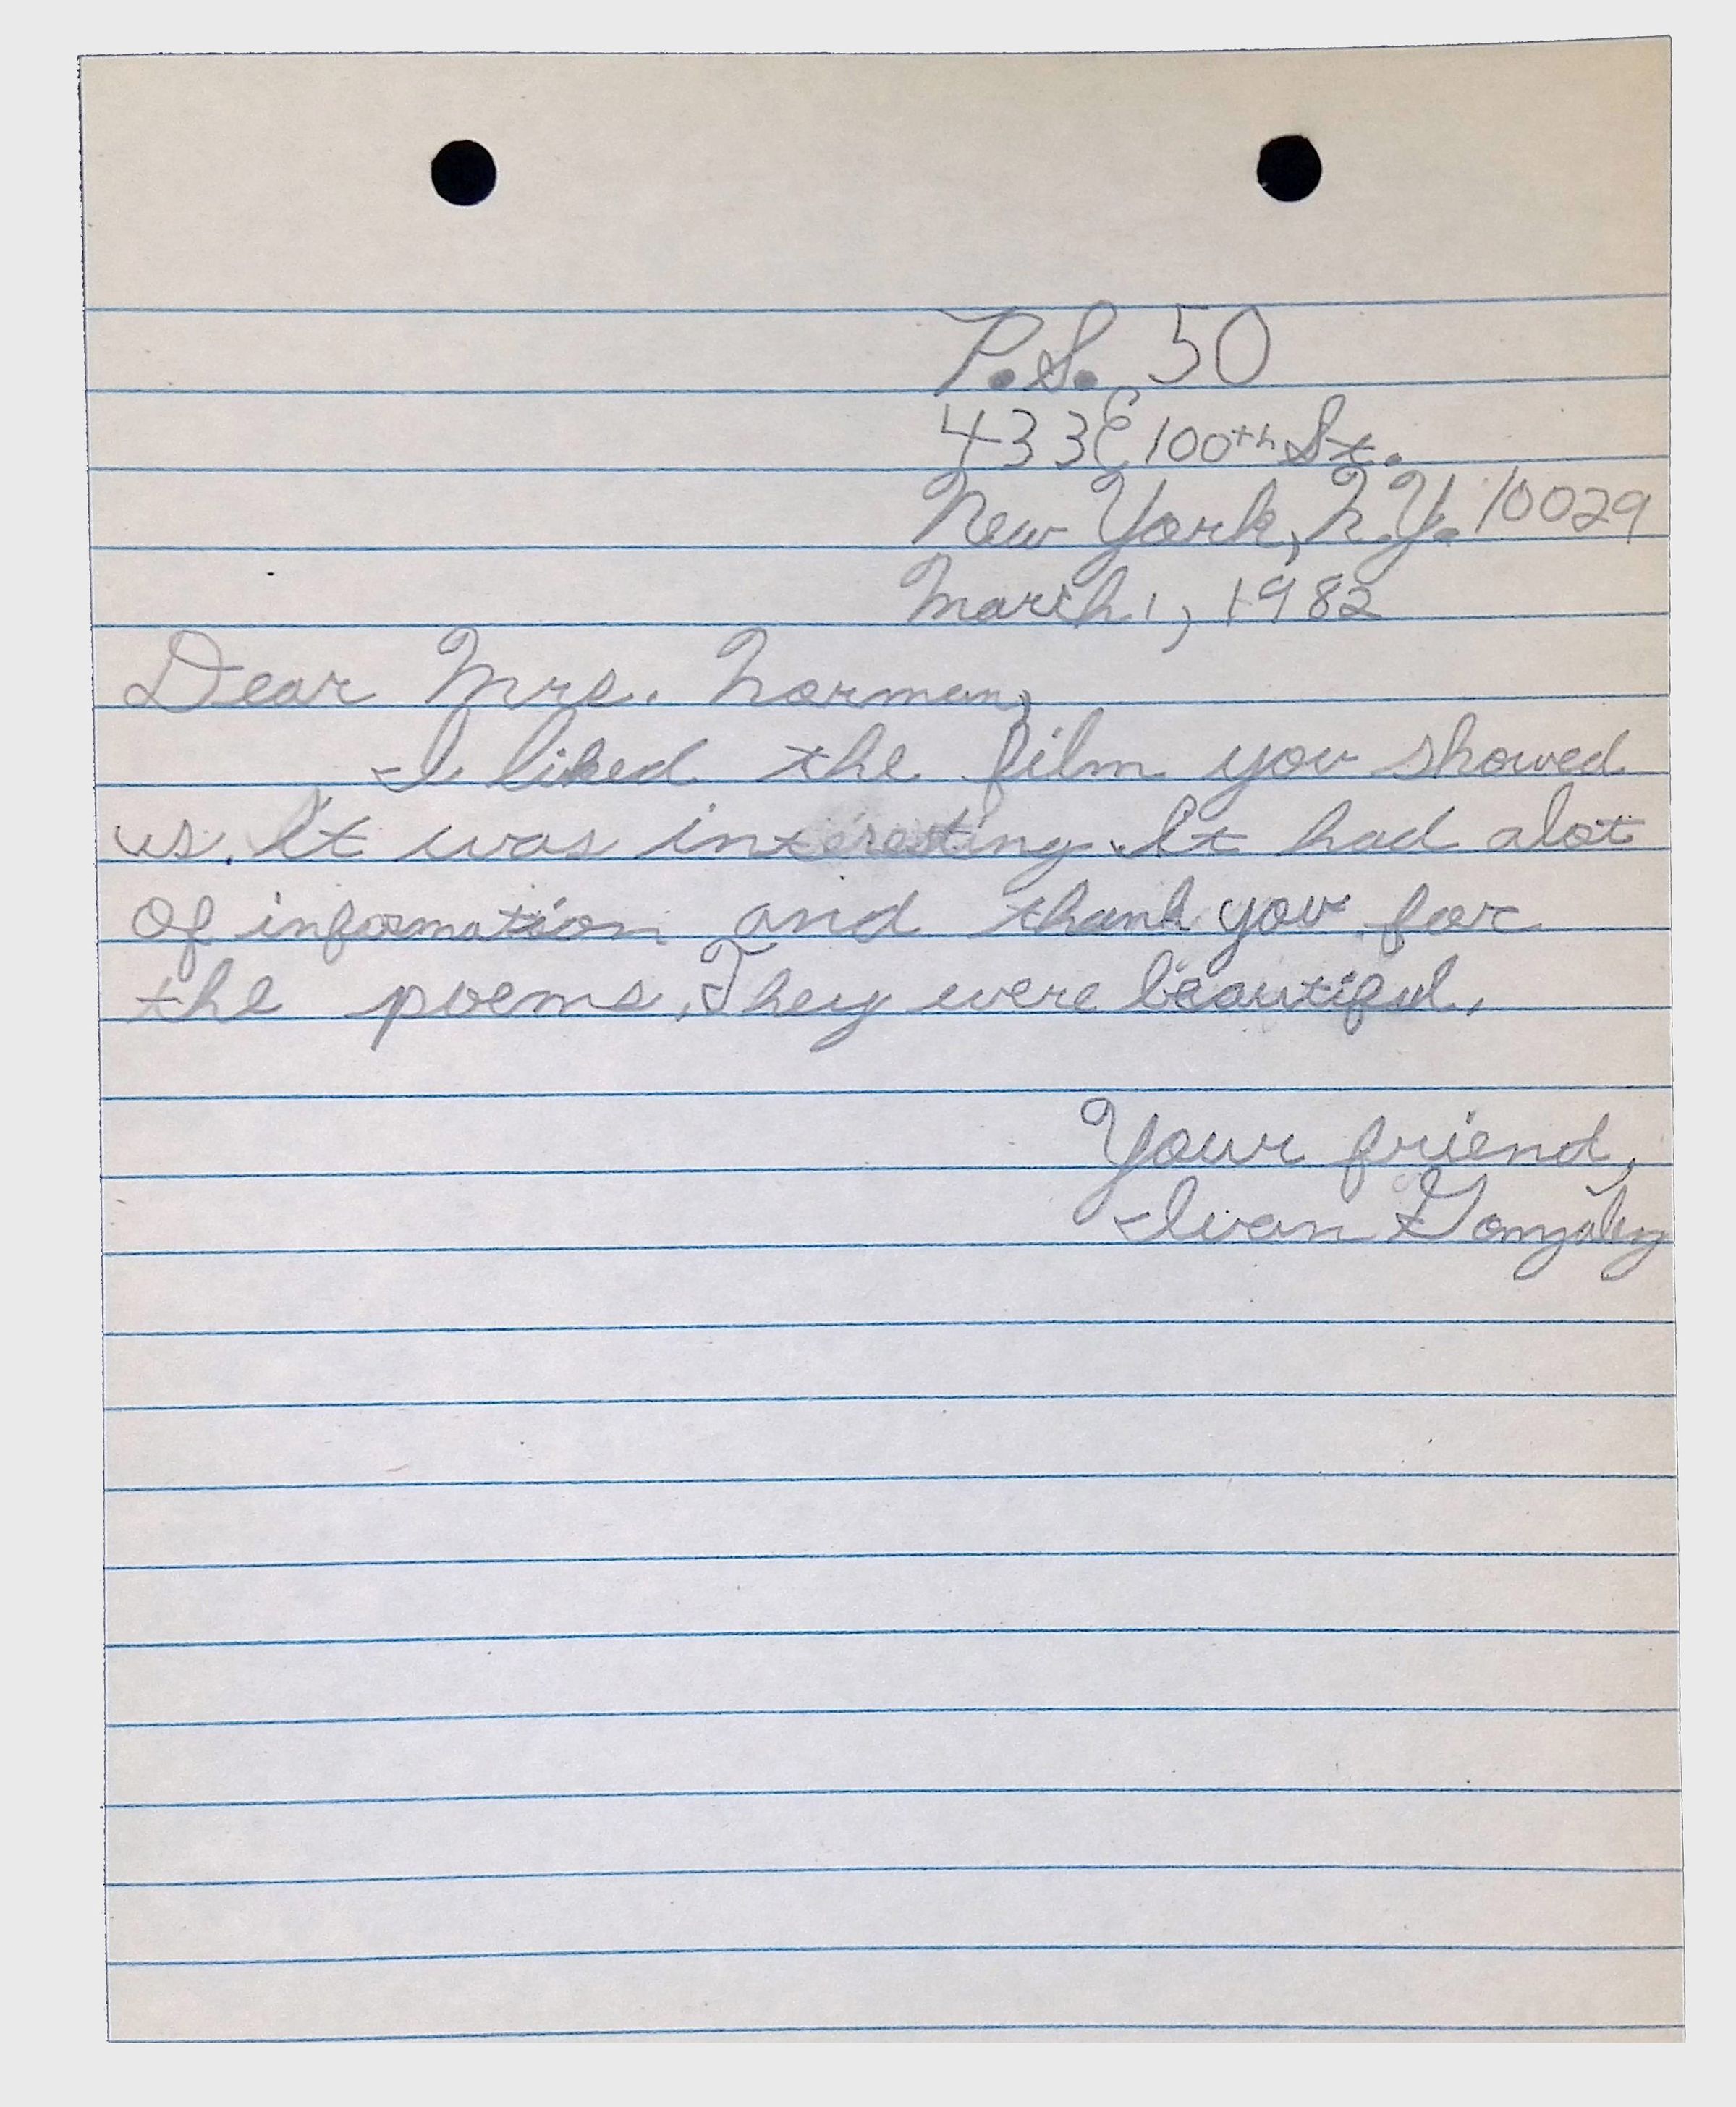 P.S. 50
433 E 100th St.
New York, N.Y. 10029
March 1, 1982
Dear Mrs. Norman,
I liked the film you showed
us. It was interesting. It had alot
of information and thank you for
the poems. They were beautiful.
Your friend,
Ivan Gonzalez